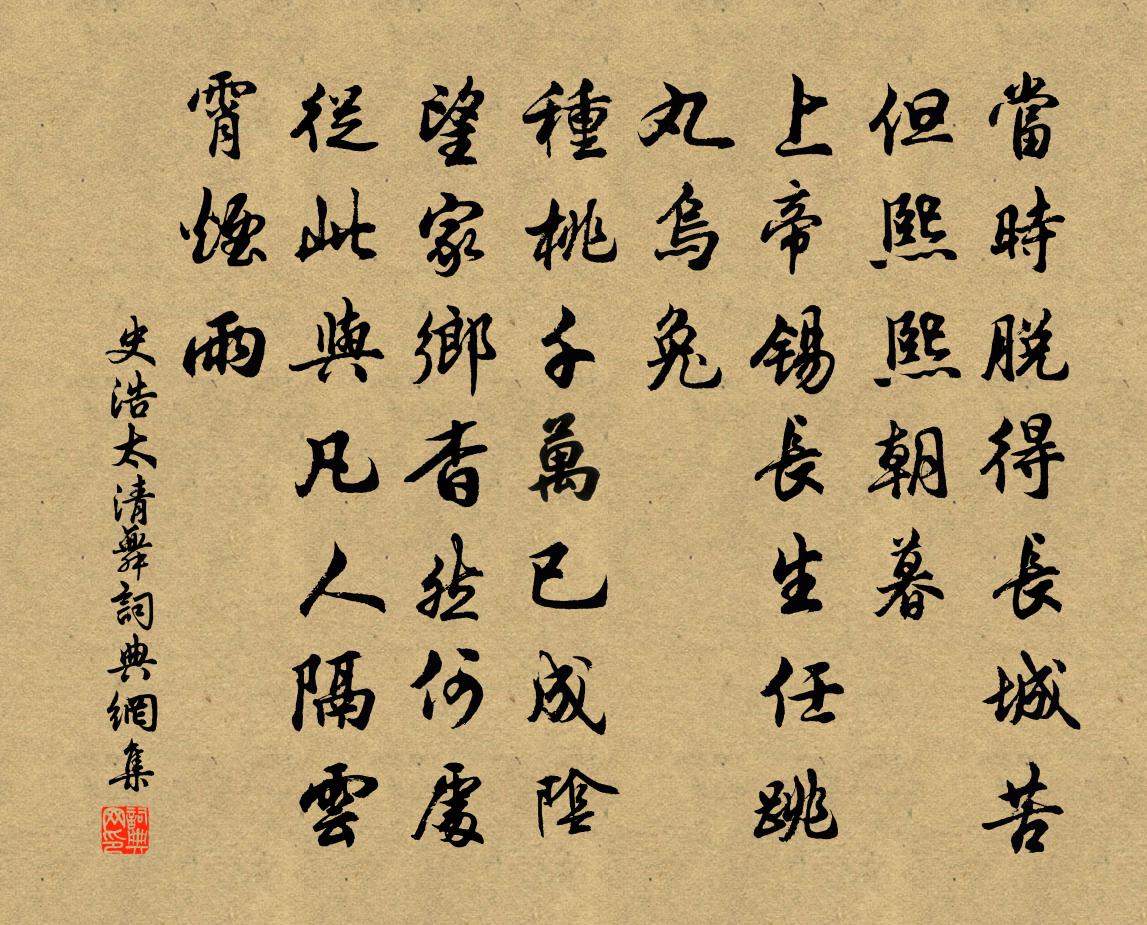 當時脫得長城苦
但熙熙朝暮
上帝錫長生任跳
丸烏兔
種桃千萬已成陰
望家鄉杳然何處
從此與凡人隔雲
霄煙雨
史浩太清舞詞典網集
詞典網印